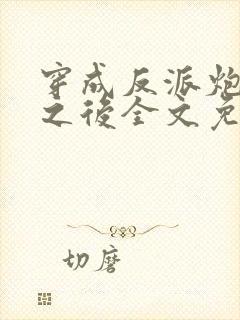 穿成反派炮
之後全文免
切磨